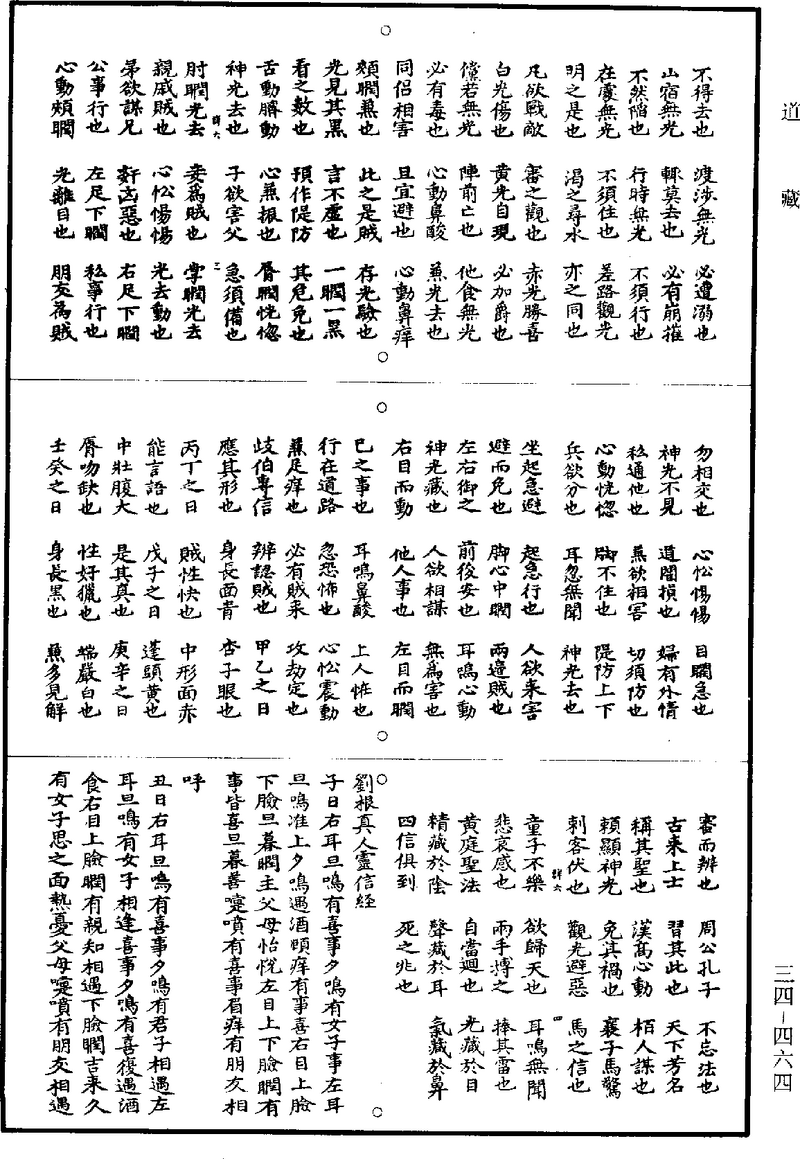 道藏
不得去也　渡涉無光　必遭溺也
山宿無光　輒莫去也　必有崩摧
不然陷也　行時無光　不須行也
在處無光　不須住也　差路觀光
明之是也　渴之尋水　亦之同也
凡欲戰敵　審之觀也　赤光勝喜
白光傷也　黄光自現　必加爵也
儻若無光　陣前亡也　他食無光
必有毒也　心動鼻酸　蕪光去也
同侶相害　且宜避也　心動鼻痒
頰瞤蕪也　此之是賊　存光驗也
光見其黑　言不虛也　一瞤一黑
看之數也　預作隄防　其危免也
舌動臍動　心蕪振也　脣瞤恍惚
神光去也　子欲害父　急須備也
肘瞤光去　妾為賊也　掌瞤光去
親戚賊也　心忪惕惕　光去動也
弟欲謀兄　訐凶惡也　右足下瞤
公事行也　左足下瞤　私事行也
心動頰瞤　光離目也　朋友為賊
勿相交也　心忪惕惕　目瞤急也
神光不見　道閽損也　婦有外情
私通他也　蕪欲相害　切須防也
心動恍惚　脚不住也　隄防上下
兵欲分也　耳忽無聞　神光去也
坐起急避　起急行也　人欲来害
避而免也　脚心中瞤　兩邊賊也
左右御之　前後安也　耳鳴心動
神光藏也　人欲相謀　無為害也
右目而動　他人事也　左目而瞤
已之事也　耳鳴鼻酸　上人恠也
行在道路　忽恐怖也　心忪震動
蕪足痒也　必有賊来　攻劫定也
歧伯專信　辨認賊也　甲乙之日
應其形也　身長面青　杏子眼也
丙丁之日　賊性快也　中形面赤
能言語也　戊子之日　蓬頭黃也
中壯腹大　是其真也　庚辛之日
脣吻缺也　性好獵也　端嚴白也
壬癸之日　身長黑也　蕪多見解
審而辨也　周公孔子　不忘法也
古来上士　習其此也　天下芳名
稱其聖也　漢高心動　栢人謀也
賴顯神光　免其禍也　襄子馬驚
刺客伏也　觀光避惡　馬之信也
童子不樂　欲歸天也　耳鳴無聞
悲哀感也　兩手搏之　捧其雷也
黄庭聖法　自當迴也　光藏於目
精藏於陰　聲藏於耳　氣藏於鼻
四信俱到　死之兆也
劉根真人靈信經
子日右耳旦鳴有喜事夕鳴有女子事左耳
旦鳴准上夕鳴遇酒頤痒有事喜右目上臉
下臉旦暮瞤主父母怡恱左目上下臉瞤有
事皆喜旦暮善嚏噴有喜事眉痒有朋友相
呼
丑日右耳旦鳴有喜事夕鳴有君子相遇左
耳旦鳴有女子相逢喜事夕鳴有喜復遇酒
食右目上臉瞤有親知相遇下臉瞤吉来久
有女子思之面熱憂父母嚏噴有朋友相遇
三四－四六四